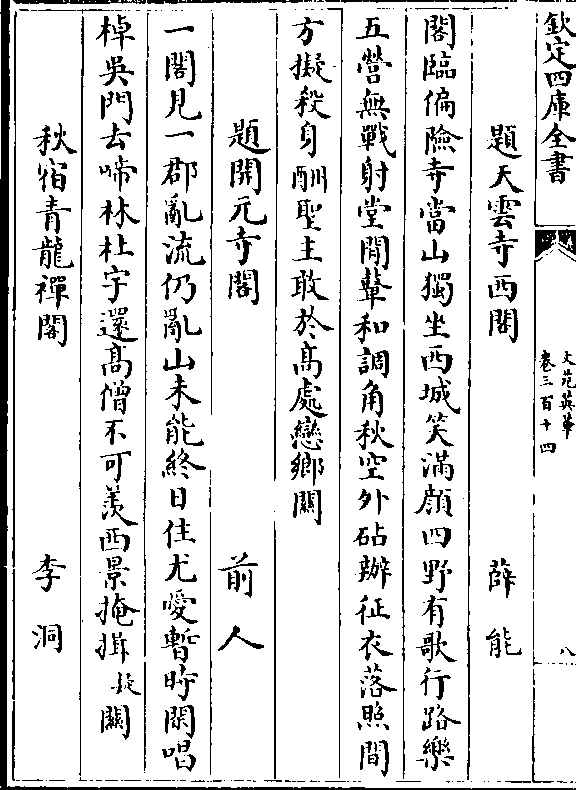 欽定四庫全書
文苑英華
卷三百十四
八
題天雲寺西閣 薛能
閣臨偏險寺當山獨坐西城笑滿顔四野有歌行路樂
五營無戰射堂閒鼙和調角秋空外砧辦征衣落照間
方擬殺身酬聖主敢於高處戀鄉關
題開元寺閣 前人
一閣見一郡亂流仍亂山未能終日住尤愛暫時閑唱
棹吳門去啼林杜宇還高僧不可羨西景掩揖疑關
秋宿青龍禪閣 李洞